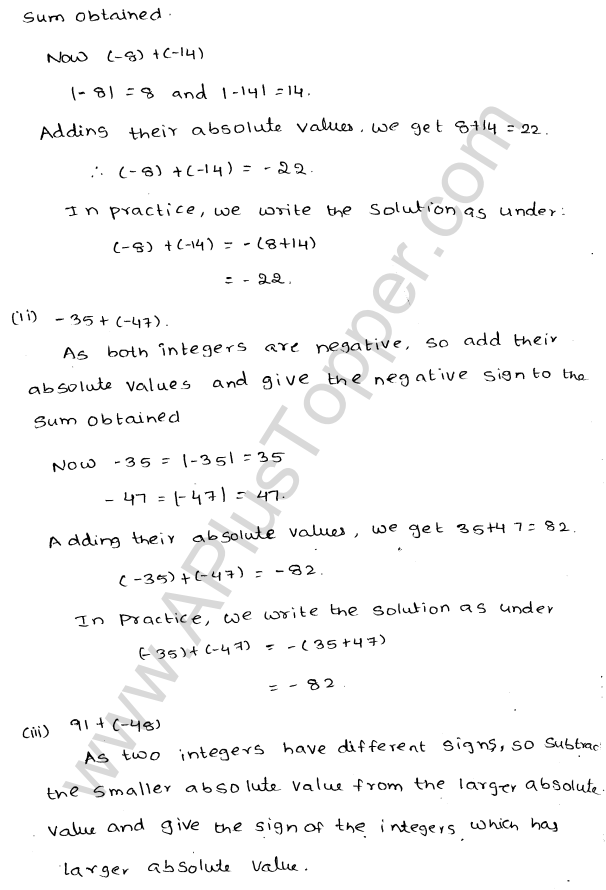 Sum obtained.
Now (-8) + (-14)
|-8| = 8 and |-14| = 14.
Adding their absolute values, we get 8+14 = 22.
∴ (-8) + (-14) = -22.
In practice, we write the solution as under:
(-8) + (-14) = -(8+14)
= -22.
(ii) -35 + (-47).
As both integers are negative, so add their
absolute values and give the negative sign to the
Sum obtained
Now -35 = |-35| = 35
-47 = |-47| = 47.
Adding their absolute values, we get 35+47 = 82.
(-35) + (-47) = -82.
In Practice, we write the solution as under
(-35) + (-47) = -(35+47)
= -82.
(iii) 91 + (-48)
As two integers have different signs, so subtrac
the smaller absolute value from the larger absolute
value and give the sign of the integers which has
larger absolute value.
www.APlusTopper.com